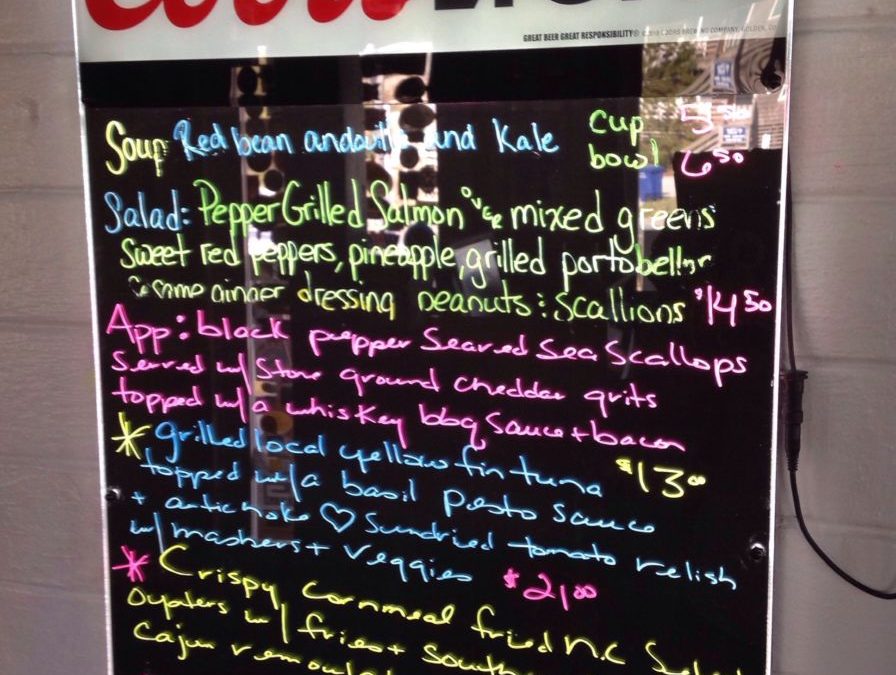 Coors
GREAT BEER GREAT RESPONSIBILITY® ©2013 COORS BREWING COMPANY, GOLDEN, CO
Soup Red bean andouille and Kale cup 5
bowl 6 50
Salad: Pepper Grilled Salmon over mixed greens
Sweet red peppers, pineapple, grilled portobello
ginger dressing peanuts : scallions $14 50
App: black pepper Seared Sea Scallops
Served w/ Stone ground cheddar grits
topped w/a whiskey bbq Sauce + bacon
* grilled local yellowfin tuna $13 00
topped w/a basil pesto sauce
+ artichoke ♡ Sundried tomato relish
w/ mashers + veggies $21 00
* Crispy Cornmeal fried N.C
Oysters w/ fries +
Cajun